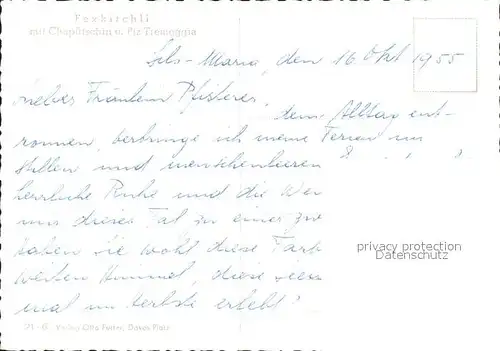 Fexkirchli
mit Chapütschin u. Piz Tremoggia
Sils-Maria, den 16. Okt. 1955
Liebes Fräulein Pfisterer,
dem Alltag ent-
ronnen, verbringe ich meine Ferien im
stillen und menschenleeren
herrliche Ruhe und die Wei
uns dieses Tal zu einer zw
haben Sie wohl diese Farb
weiten Himmel, diese
mal im Herbste erlebt?
privacy protection
Datenschutz
Verlag Otto Furter, Davos Platz